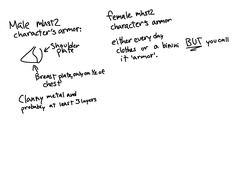 Male mhst2
character's armor:
Shoulder
plate
Breast plate, only on ½ of
chest
Clanny metal and
probably at least 3 layers
female mhst2
character's armor
either every day
clothes or a bikini BUT you call
it 'armor'.